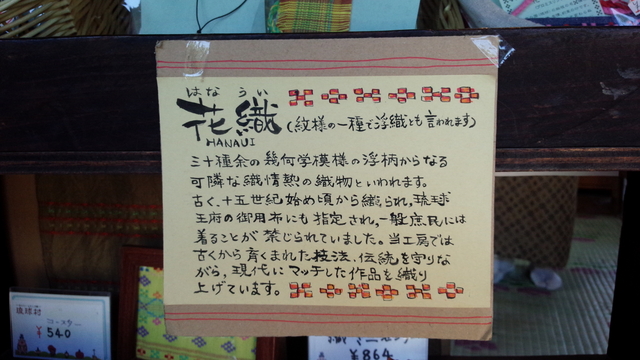 はな うい
花織
HANAUI
(紋様の一種で浮織とも言われます)
三十種余の幾何学模様の浮柄からなる
可隣な織情熱の織物といわれます。
古く、十五世紀始め頃から織られ、琉球
王府の御用布にも指定され、一般庶民には
着ることが禁じられていました。当工房では
古くから育くまれた技法、伝統を守りな
がら、現代にマッチした作品を織り
上げています。
琉球村
コースター
¥540
¥864